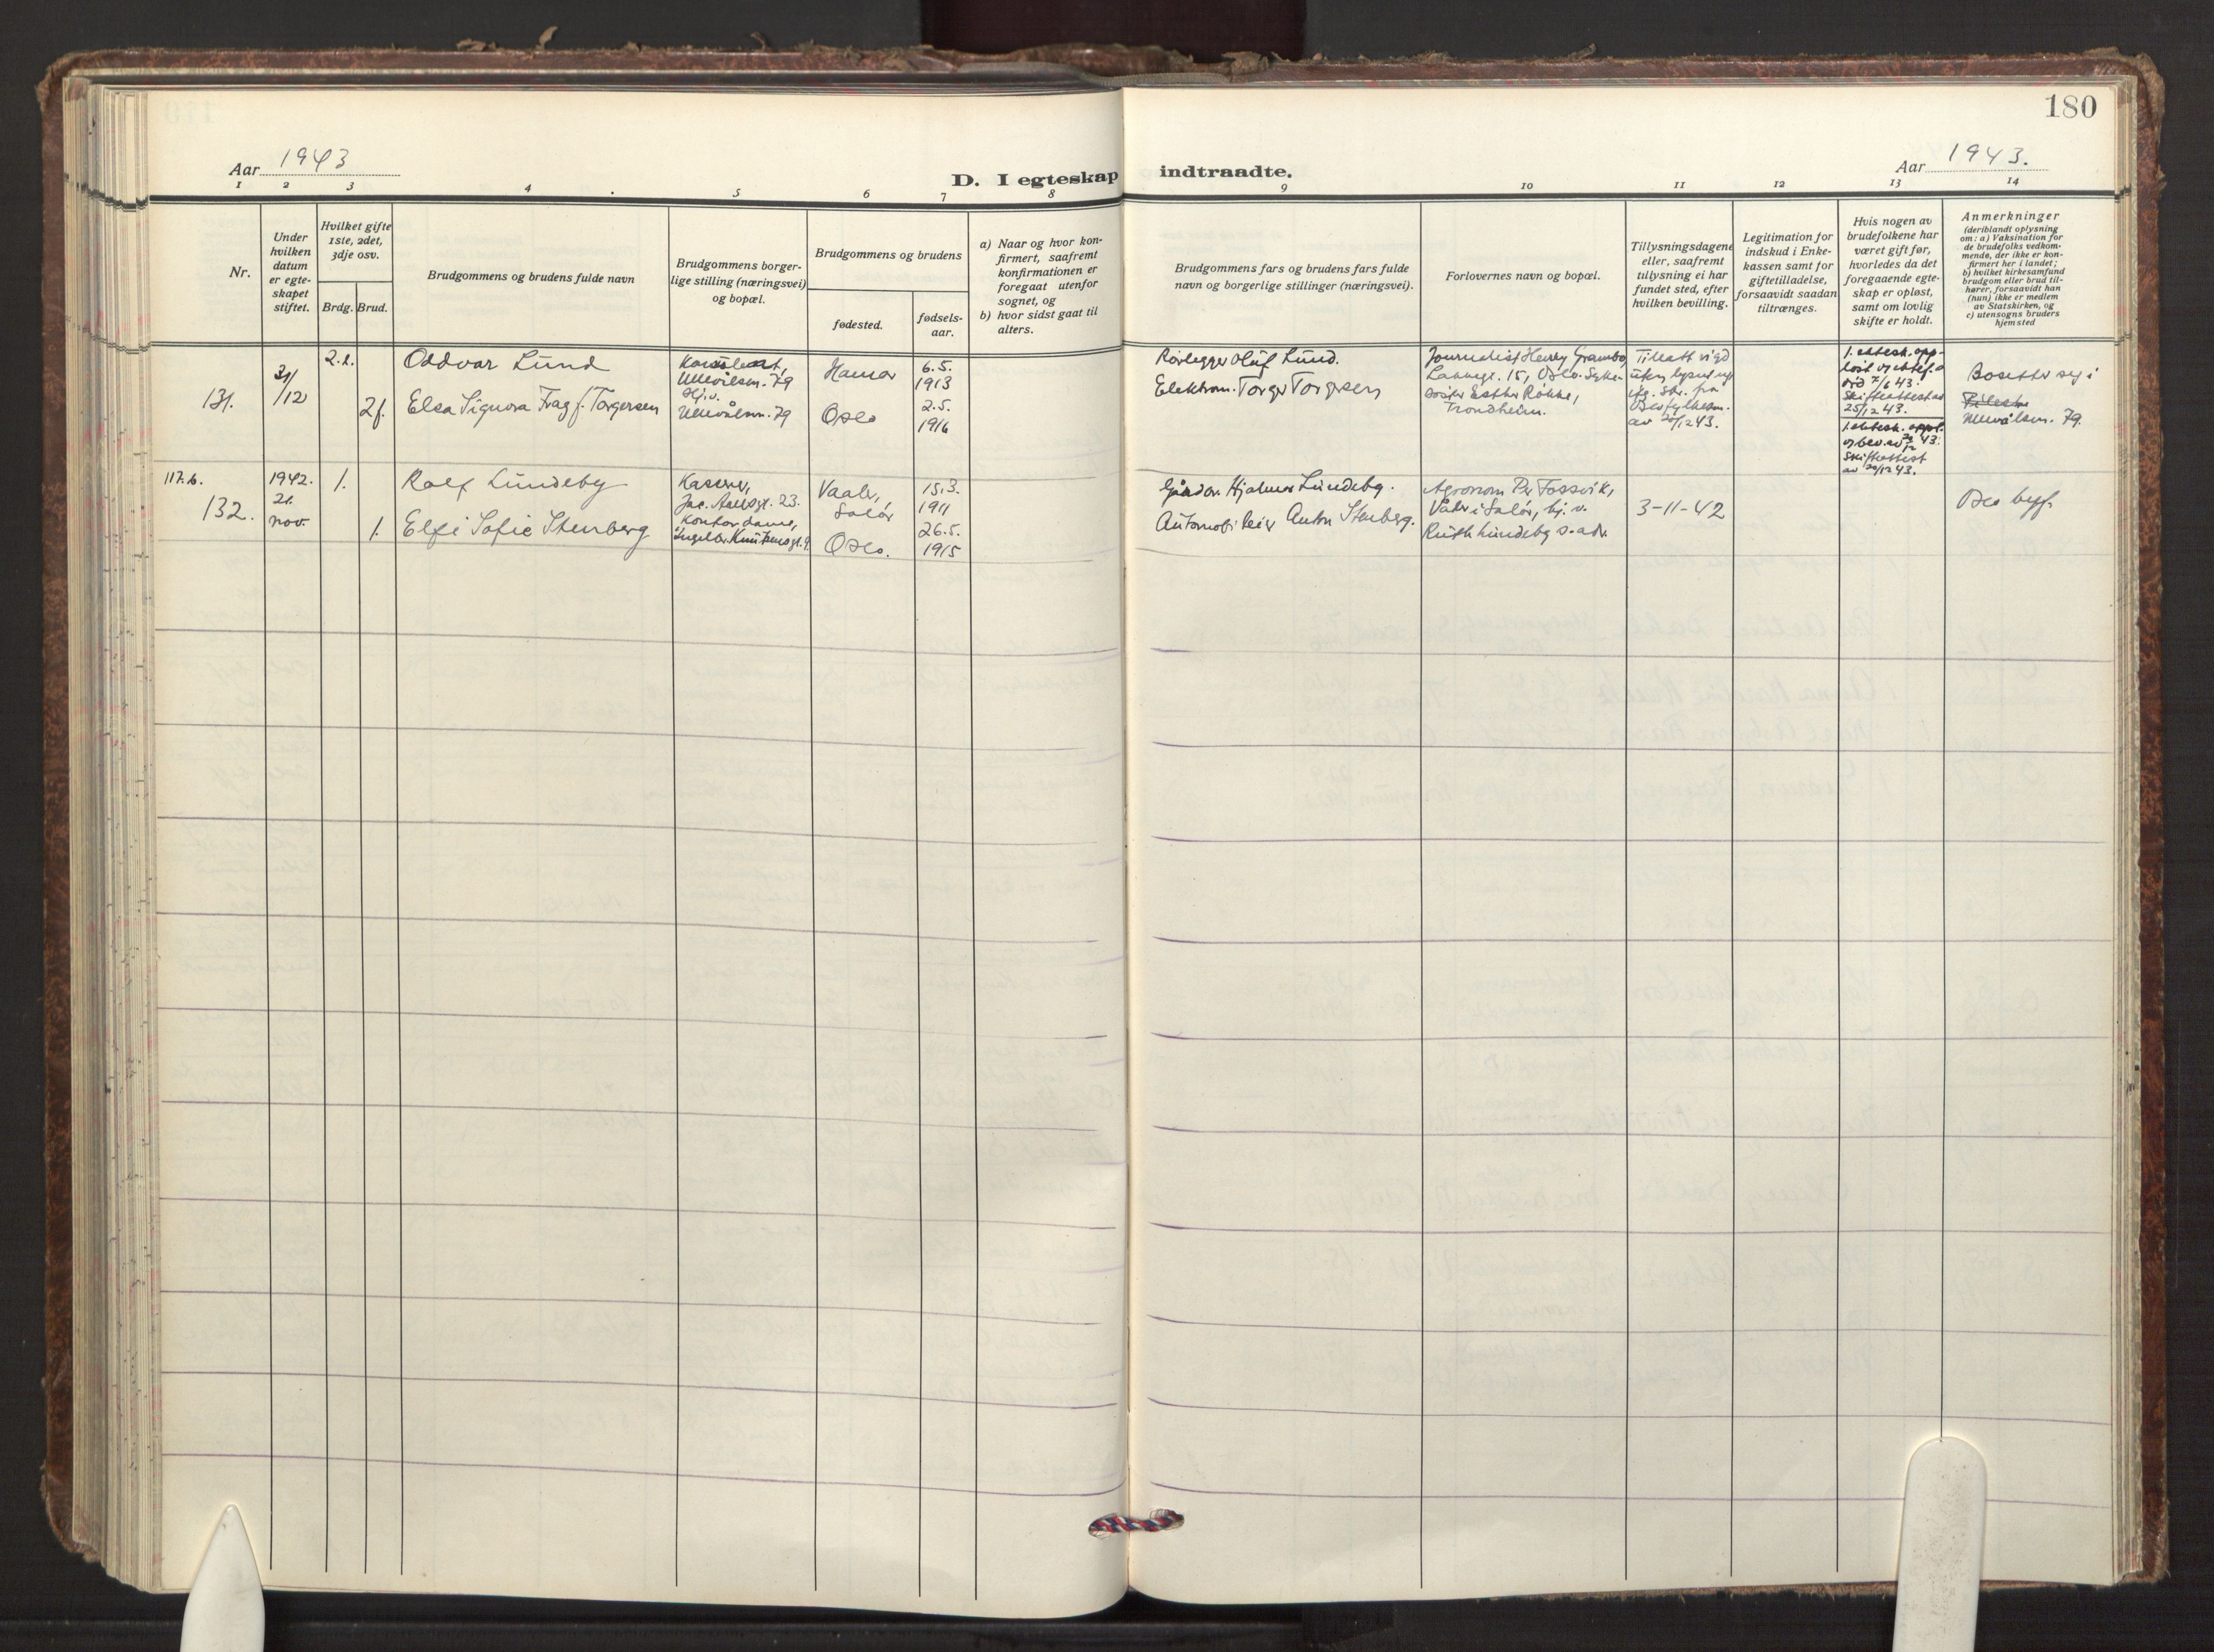 180
Aar 1943
D. I egteskap indtraadte.
Aar 1943.
1 2 3 4 5 6 7 8 9 10 11 12 13 14
Nr.
Under
hvilken
datum
er egte-
skapet
stiftet.
Hvilket gifte
1ste, 2det,
3dje osv.
Brdg. Brud.
Brudgommens og brudens fulde navn
Brudgommens borger-
lige stilling (næringsvei)
og bopæl.
Brudgommens og brudens
fødested.
fødsels-
aar.
a) Naar og hvor kon-
firmert, saafremt
konfirmationen er
foregaat utenfor
sognet, og
b) hvor sidst gaat til
alters.
Brudgommens fars og brudens fars fulde
navn og borgerlige stillinger (næringsvei).
Forlovernes navn og bopæl.
Tillysningsdagene
eller, saafremt
tillysning ei har
fundet sted, efter
hvilken bevilling.
Legitimation for
indskud i Enke-
kassen samt for
giftetilladelse,
forsaavidt saadan
tiltrænges.
Hvis nogen av
brudefolkene har
været gift før,
hvorledes da det
foregaaende egte-
skap er opløst,
samt om lovlig
skifte er holdt.
Anmerkninger
(deriblandt oplysning
om: a) Vaksination for
de brudefolks vedkom-
mende, der ikke er kon-
firmert her i landet;
b) hvilket kirkesamfund
brudgom eller brud til-
hører, forsaavidt han
(hun) ikke er medlem
av Statskirken, og
c) utensogns bruders
hjemsted
131.
31/12
2.
2f.
Oddvar Lund
Elsa Signora Frag f. Torgersen
Konsulent,
Ullevålsvn. 79
Hj.v.
Ullevålsvn. 79
Hamar
Oslo
6.5.
1913
2.5.
1916
Rørlegger Oluf Lund.
Elektrom. Torger Torgersen
Journalist Henry Grambo
15, Oslo. Syke-
søster Esther Røkke,
Trondheim.
Tillatt vigd
uten lysning
ifg. skr. fra
Oslo fylkesm.
av 20/12 43.
1. ektesk. opp-
løst
43.
Skifteattest av
25/12 43.
1. ektesk. oppl.
43.
Skifteattest
av 20/12 43.
Bosetter seg i
Ullevålsvn. 79.
117.b.
132.
1942.
21.
nov.
1.
1.
Rolf Lundeby
Elfi Sofie Stenberg
Kasserer,
Jac. Aallsgt. 23.
Kontordame,
Ingebr. Knutsensgt. 9.
Vaaler,
Solør
Oslo.
15.3.
1911
26.5.
1915
Hjalmar Lundeby.
Automobileier Anton Stenberg.
Agronom Per Fossvik,
Våler i Solør, hj. v.
Ruth Lundeby s. adr.
3-11-42
Oslo byf.